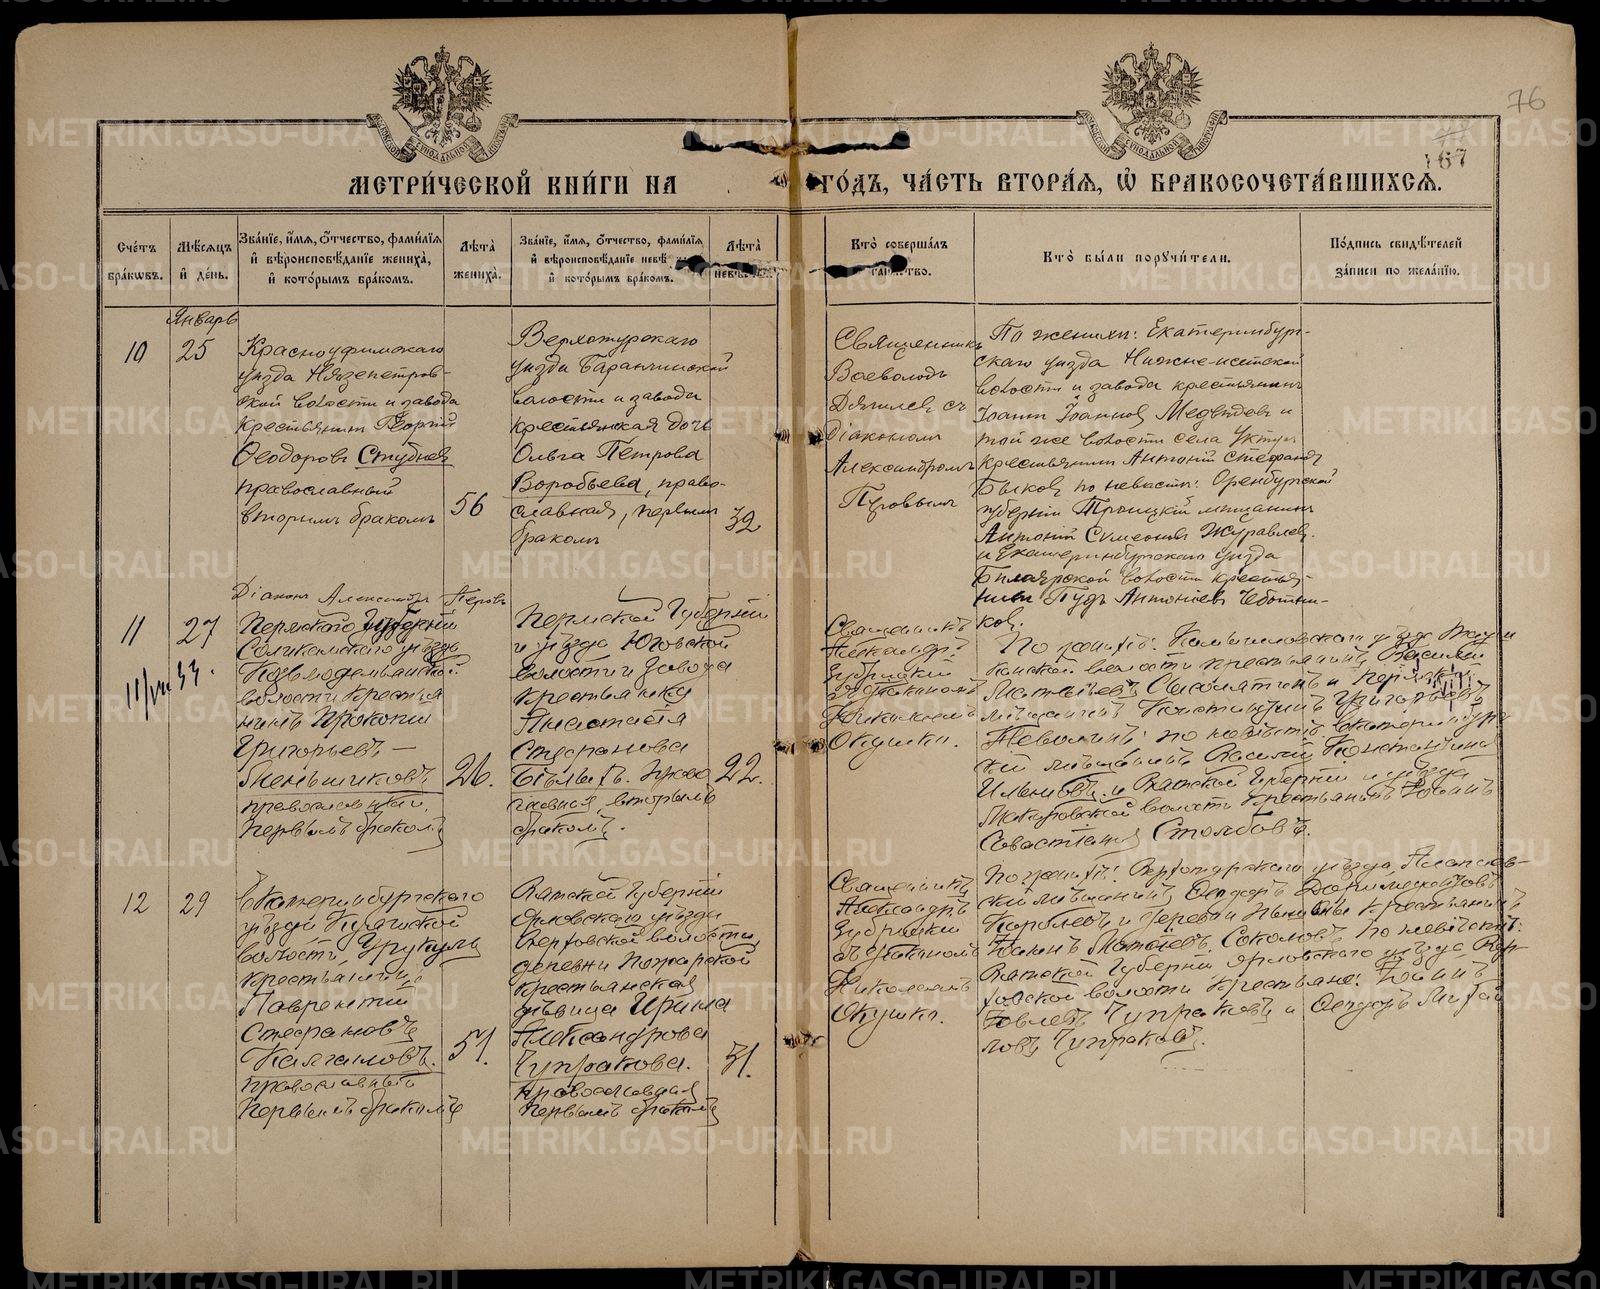 76
167
МЕТРИЧЕСКОЙ КНИГИ НА ГОДЪ, ЧАСТЬ ВТОРАЯ, Ѡ БРАКОСОЧЕТАВШИХСЯ.
Счетъ браковъ.
Мѣсяцъ и день.
Званіе, имя, отчество, фамилія и вѣроисповѣданіе жениха, и которымъ бракомъ.
Лѣта жениха.
Званіе, имя, отчество, фамилія и вѣроисповѣданіе невѣ и которымъ бракомъ.
Лѣта
Кто совершалъ
Кто были поручители.
Подпись свидѣтелей записи по желанію.
Январь
10
25
Красноуфимскаго
уѣзда Нязепетров-
ской волости и завода
крестьянинъ Георгій
Ѳеодоровъ Студневъ
православный
вторымъ бракомъ
56
Верхотурскаго
уѣзда Баранчинской
волости и завода
крестьянская дочь
Ольга Петрова
Воробьева, право-
славная, первымъ
бракомъ
32
Священникъ
Всеволодъ
съ
Діакономъ
Александромъ
Перовымъ
По женихѣ: Екатеринбург-
скаго уѣзда Нижне-исетской
волости и завода крестьянинъ
Іоаннъ Іоанновъ Медвѣдевъ и
той же волости села Уктуса
крестьянинъ Антоній Стефановъ
Быковъ, по невѣстѣ: Оренбургской
губерніи Троицкій мѣщанинъ
Антоній Симеоновъ Журавлевъ
и Екатеринбургскаго уѣзда
волости крестья-
нинъ Антоніевъ Чеботни-
ковъ.
Діаконъ Александръ Перовъ
11
27
11/VII 33.
Пермской Губерніи
Соликамскаго уѣзда
волости крестья
нинъ Прокопій
Григорьевъ
Меньшиковъ
православный
первымъ бракомъ
26.
Пермской Губерніи
и уѣзда Юговской
волости и завода
крестьянка
Анастасія
Стефанова
Бѣлыхъ. право
славная, вторымъ
бракомъ.
22.
Священникъ
Александръ
Зубрицкій
съ діакономъ
Николаемъ
Окушко.
По женихѣ: Камышловскаго уѣзда
волости крестьянинъ Василій
Матвѣевъ и
мѣщанинъ Константинъ Григорьевъ
Неволинъ: по невѣстѣ: Екатеринбург
скій мѣщанинъ Василій Константиновъ
и Вятской Губерніи и уѣзда
Макаровской волости крестьянинъ Іоаннъ
Севастіановъ Столбовъ.
12
29
Екатеринбургскаго
уѣзда
волости,
крестьянинъ
Лаврентій
Стефановъ
Калгановъ.
православный
первымъ бракомъ
51.
Вятской Губерніи
Орловскаго уѣзда
Верховской волости,
деревни Пожарской
крестьянская
дѣвица Ирина
Александрова
Чупракова.
православная
первымъ бракомъ
31.
Священникъ
Александръ
Зубрицкій
съ діакономъ
Николаемъ
Окушко.
По женихѣ: Верхотурскаго уѣзда, Алапаев-
скій мѣщанинъ Ѳеодоръ
Коробовъ и деревни крестьянинъ
Іоаннъ Матвѣевъ Соколовъ, по невѣстѣ:
Вятской Губерніи Орловскаго уѣзда Вер-
ховской волости крестьяне: Іоаннъ
Іовлевъ Чупраковъ и Ѳеодоръ Михай
ловъ Чупраковъ.